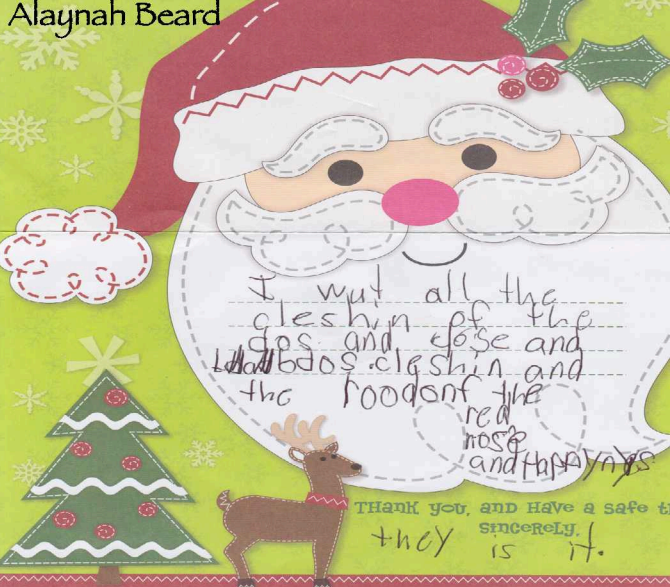 Alaynah Beard
I wut all the
cleshin of the
dos and close and
bdos.cleshin and
the roodonf the
red
nose
and Happynys.
THank you, and Have a safe t
sincerely,
they is it.